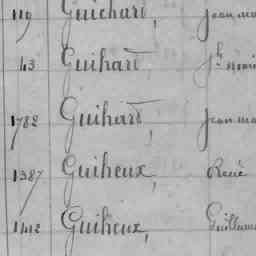 119 Guichard, Jean ma
43 Guihard J.h mari
1782 Guihard, Jean ma
1387 Guiheux, René
1412 Guiheux, Guillaum